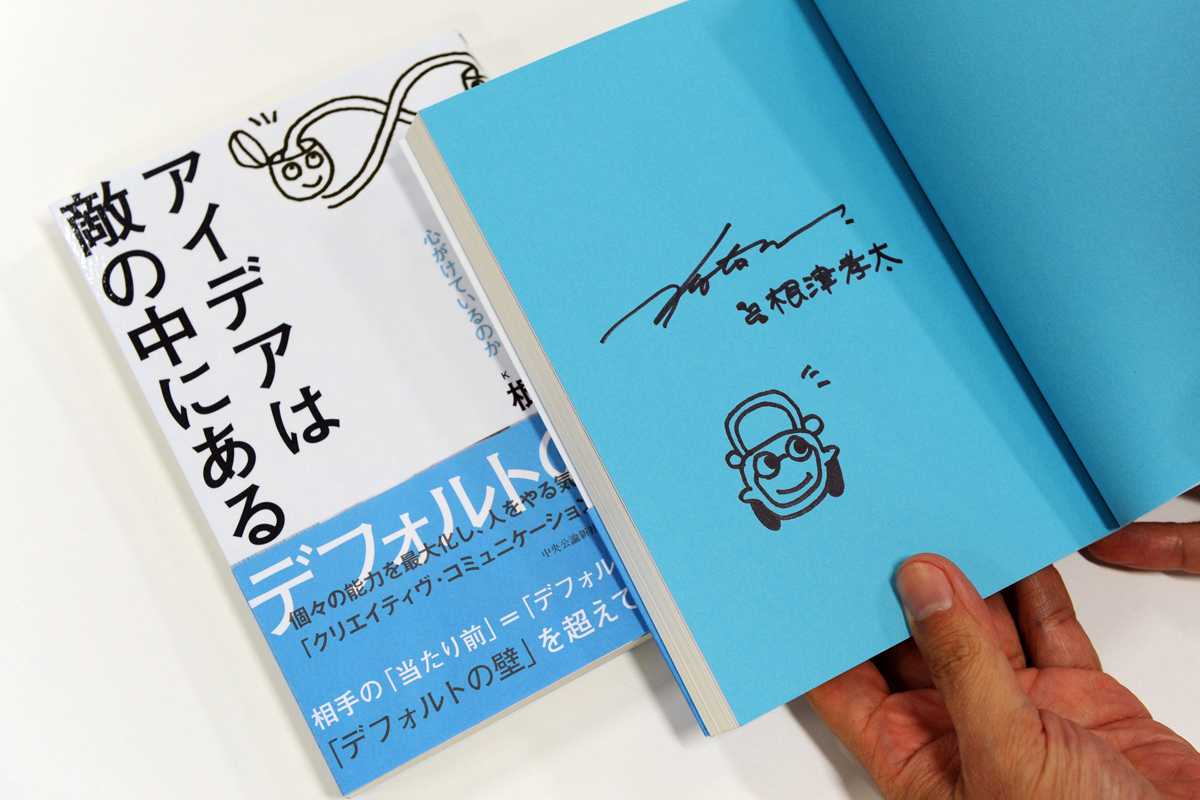 アイデアは
敵の中にある
心がけているのか
デフォルトの
個々の能力を最大化し、人をやる気
「クリエイティヴ・コミュニケーション
中央公論新社
相手の「当たり前」=「デフォル
「デフォルトの壁」を超えて
根津孝太